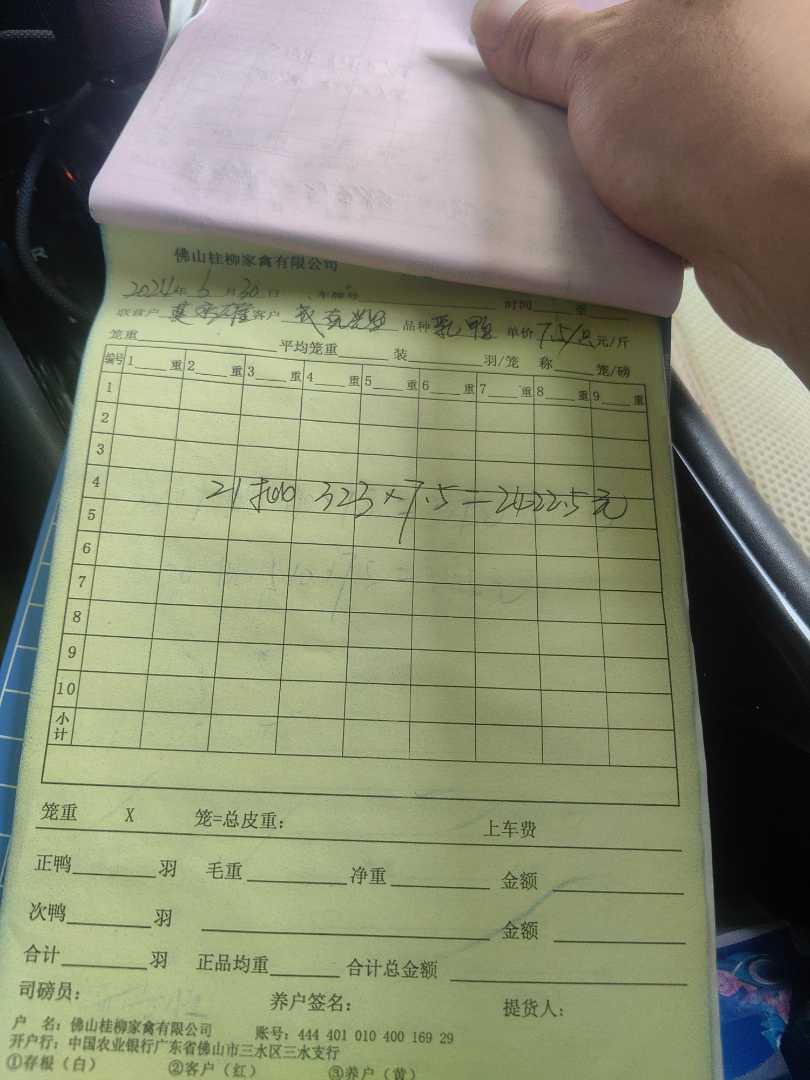 佛山桂柳家禽有限公司
2024年6月30日 车牌号 时间 至
联营户 客户 品种 乳鸭 单价 7.5/只 元/斤
笼重 平均笼重 装 羽/笼 称 笼/磅
编号 1 重 2 重 3 重 4 重 5 重 6 重 7 重 8 重 9 重
1
2
3
4
21 323×7.5=2422.5元
5
6
7
8
9
10
小计
笼重 X 笼=总皮重： 上车费
正鸭 羽 毛重 净重 金额
次鸭 羽 金额
合计 羽 正品均重 合计总金额
司磅员： 养户签名： 提货人：
户 名：佛山桂柳家禽有限公司 账号：444 401 010 400 169 29
开户行：中国农业银行广东省佛山市三水区三水支行
①存根（白） ②客户（红） ③养户（黄）